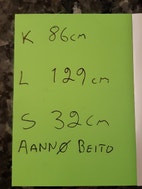 K 86cm
L 129cm
S 32cm
AANNØ BEITO